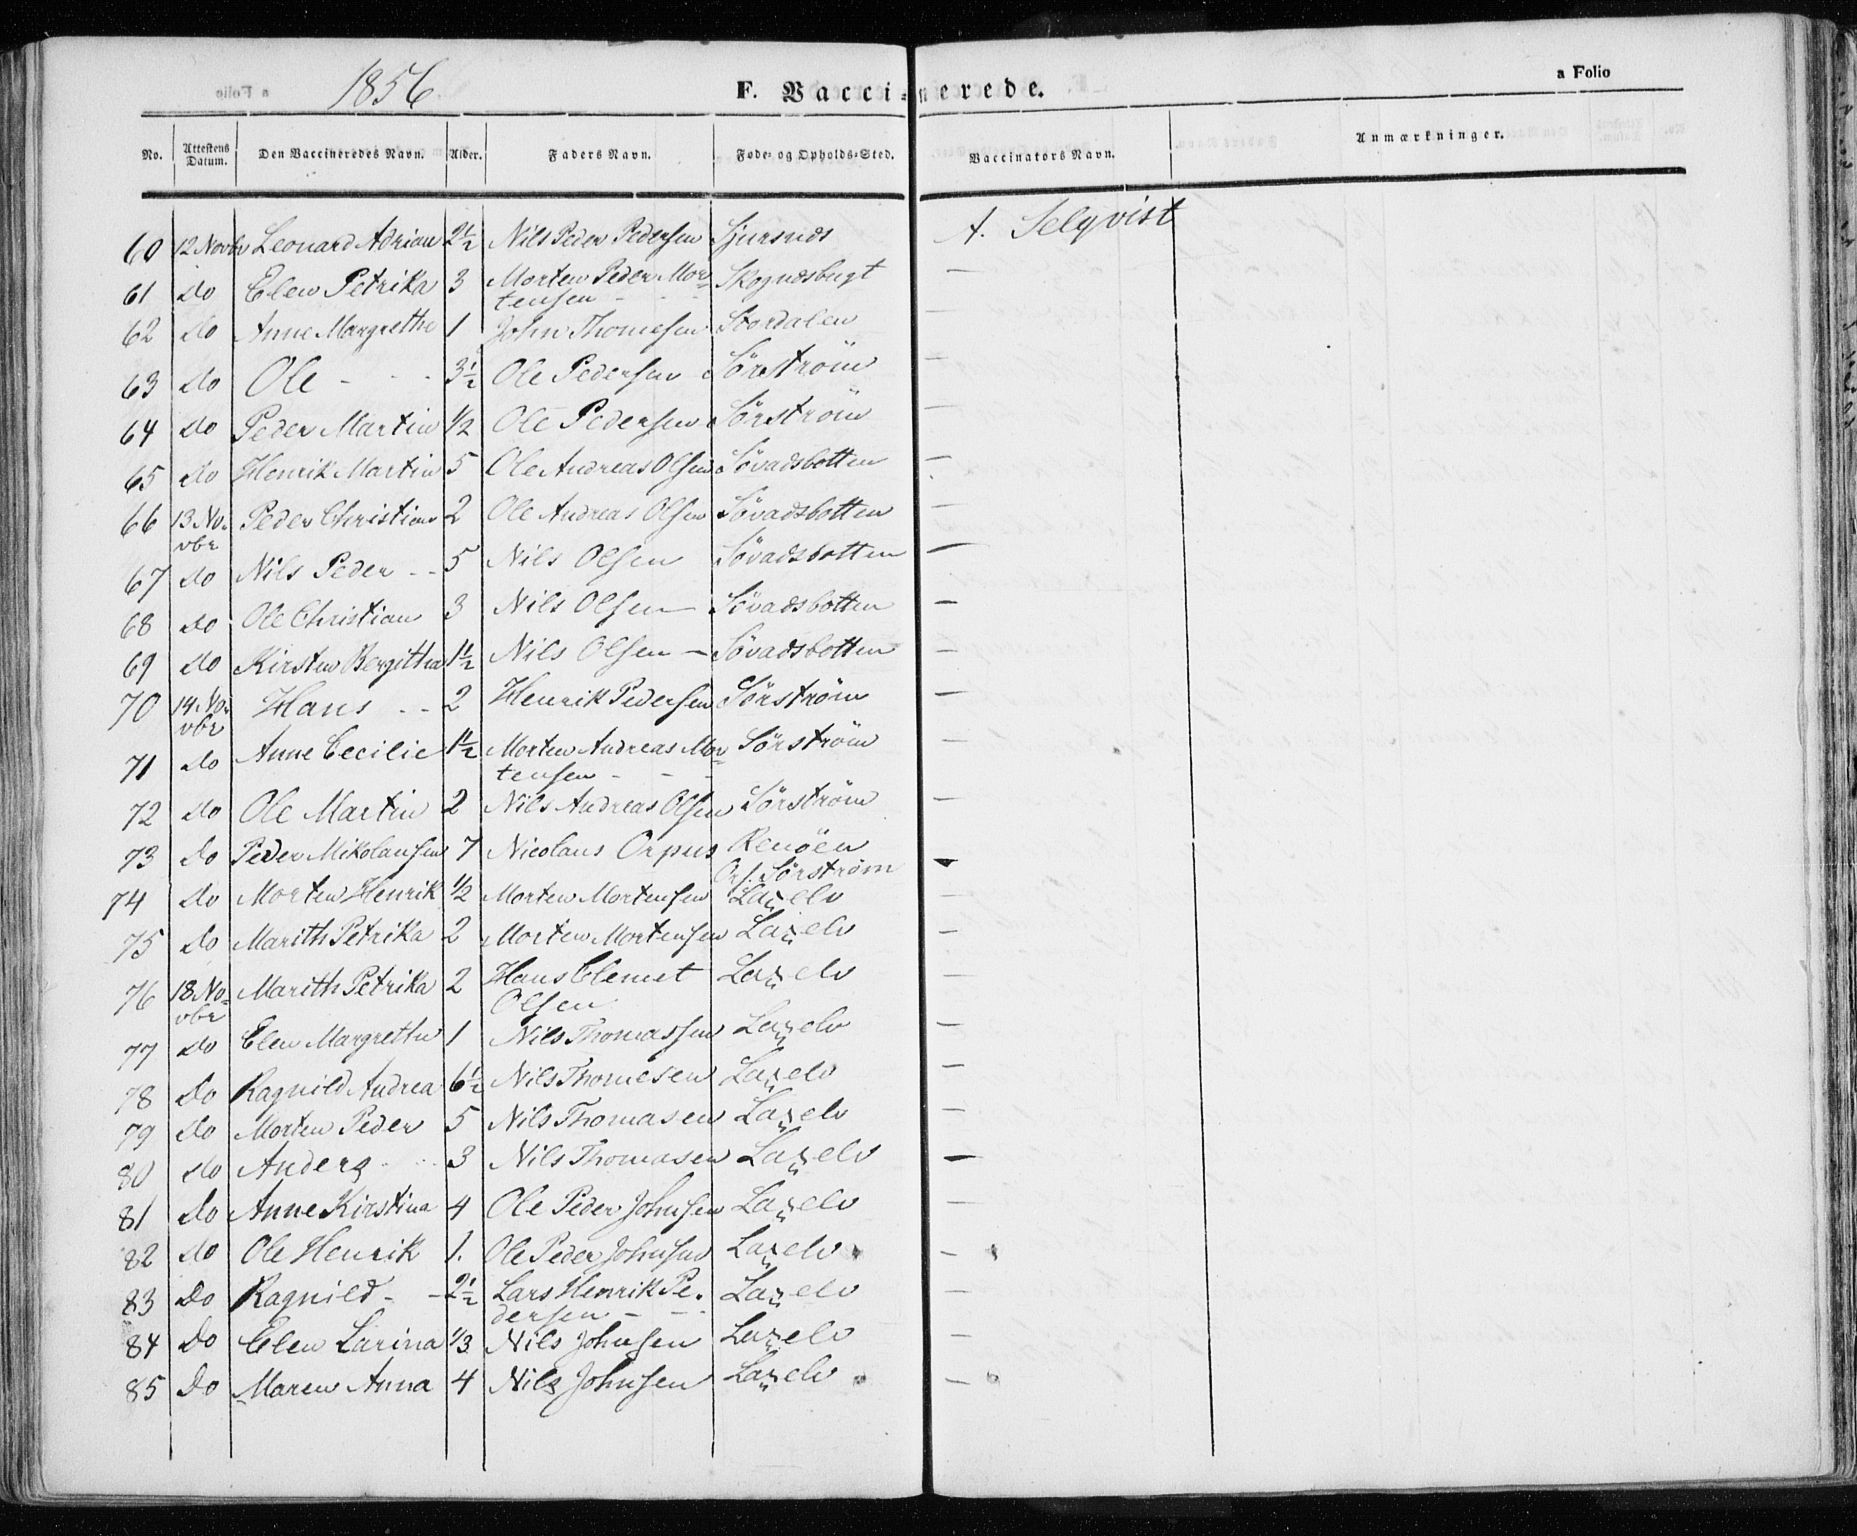 1856
F. Vaccinerede.
a Folio
No. Attestens Datum. Den Vaccineredes Navn. Alder. Faders Navn. Føde- og Opholds-Sted. Vaccinators Navn. Anmærkninger.
60 12 Novbr Leonard Adrian 2½ Nils Peder Pedersen Sjursnds A. Selqvist
61 do Elen Petrika 3 Morten Peder Mor- Skogndsbugt —
tensen - -
62 do Anne Margrethe 1 John Thomesen Stordalen —
63 do Ole - - - 3½ Ole Pedersen Sörström —
64 do Peder Martin ½ Ole Pedersen Sörström —
65 do Henrik Martin 5 Ole Andreas Olsen Sövadsbotten —
66 13 No- Peder Christian 2 Ole Andreas Olsen Sövadsbotten —
vbr
67 do Nils Peder - - 5 Nils Olsen Sövadsbotten —
68 do Ole Christian 3 Nils Olsen — Sövadsbotten —
69 do Kirsten Bergitha 1½ Nils Olsen — Sövadsbotten —
70 14 No- Hans - - 2 Henrik Pedersen Sörström —
vbr
71 do Anne Cecilie 1½ Morten Andreas Mor- Sörström —
tensen - - -
72 do Ole Martin 2 Nils Andreas Olsen Sörström —
73 do Peder Mikolausen 7 Nicolaus Orpus Renöen —
Sørstrøm
74 do Morten Henrik ½ Morten Mortensen Lazelv —
75 do Marith Petrika 2 Morten Mortensen Lazelv —
76 18 No- Marith Petrika 2 Hans Clemet Lazelv —
vbr Olsen
77 do Elen Margrethe 1 Nils Thomassen Lazelv —
78 do Ragnild Andrea 6½ Nils Thomesen Lazelv —
79 do Morten Peder 5 Nils Thomasen Lazelv —
80 do Anders - - 3 Nils Thomasen Lazelv —
81 do Anne Kirstina 4 Ole Peder Johnsen Lazelv —
82 do Ole Henrik 1. Ole Peder Johnsen Lazelv —
83 do Ragnild - - 2½ Lars Henrik Pe- Lazelv —
dersen - -
84 do Elen Larina ⅓ Nils Johnsen Lazelv —
85 do Maren Anna 4 Nils Johnsen Lazelv —